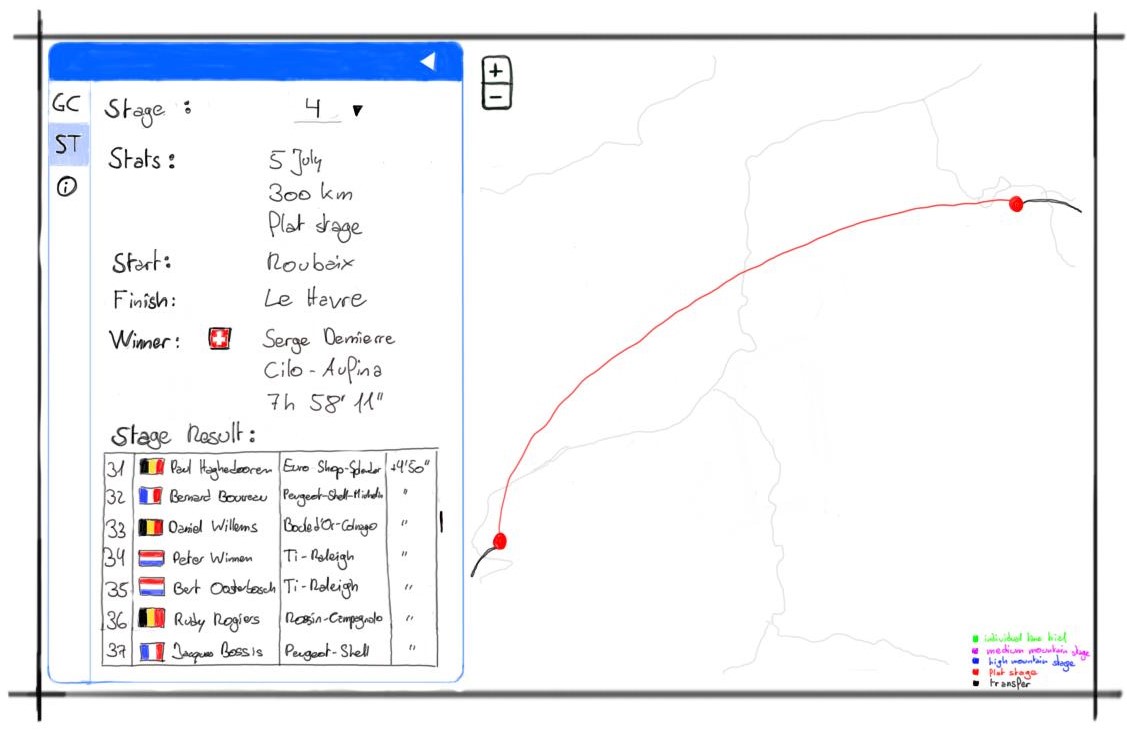 +
−
GC
ST
i
Stage : 4
Stats : 5 July
300 km
Flat stage
Start: Roubaix
Finish: Le Havre
Winner: Serge Demierre
Cilo - Aufina
7h 58' 11"
Stage Result:
31 Paul Haghedooren Euro Shop-Splendor +4'50"
32 Bernard Bourreau Peugeot-Shell-Michelin "
33 Daniel Willems Boule d'Or-Colnago "
34 Peter Winnen Ti-Raleigh "
35 Bert Oosterbosch Ti-Raleigh "
36 Rudy Rogiers Rossin-Campagnolo "
37 Jacques Bossis Peugeot-Shell "
individual time trial
medium mountain stage
high mountain stage
flat stage
transfer